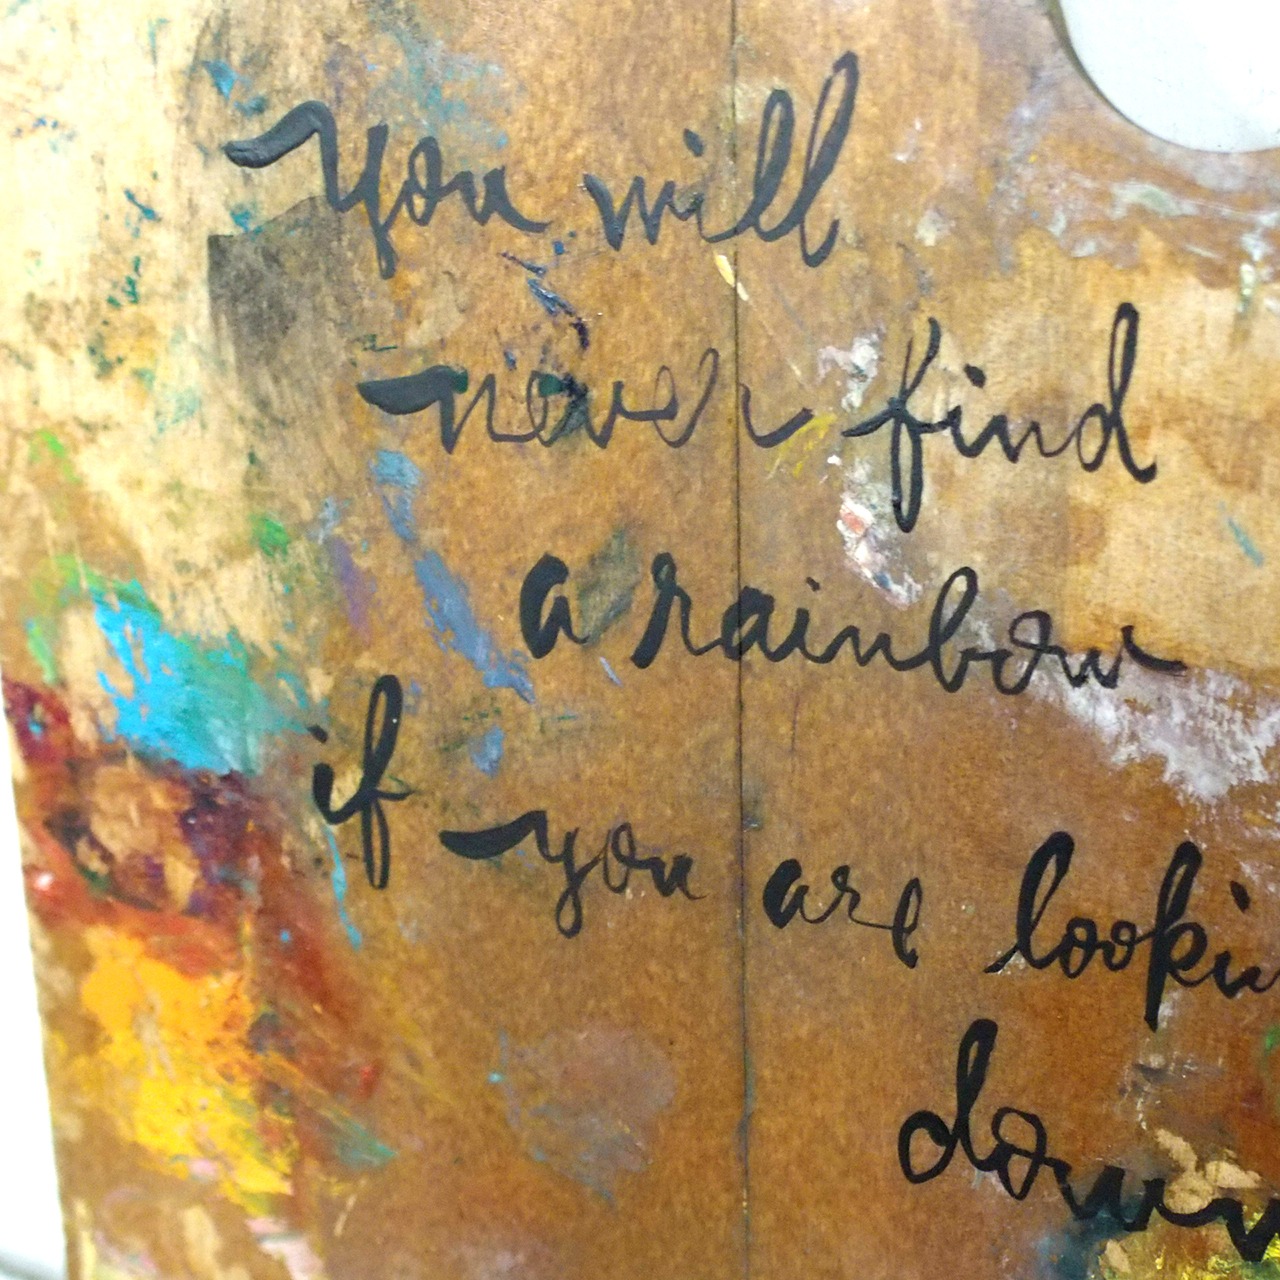 You will
never find
a rainbow
if you are lookin
down